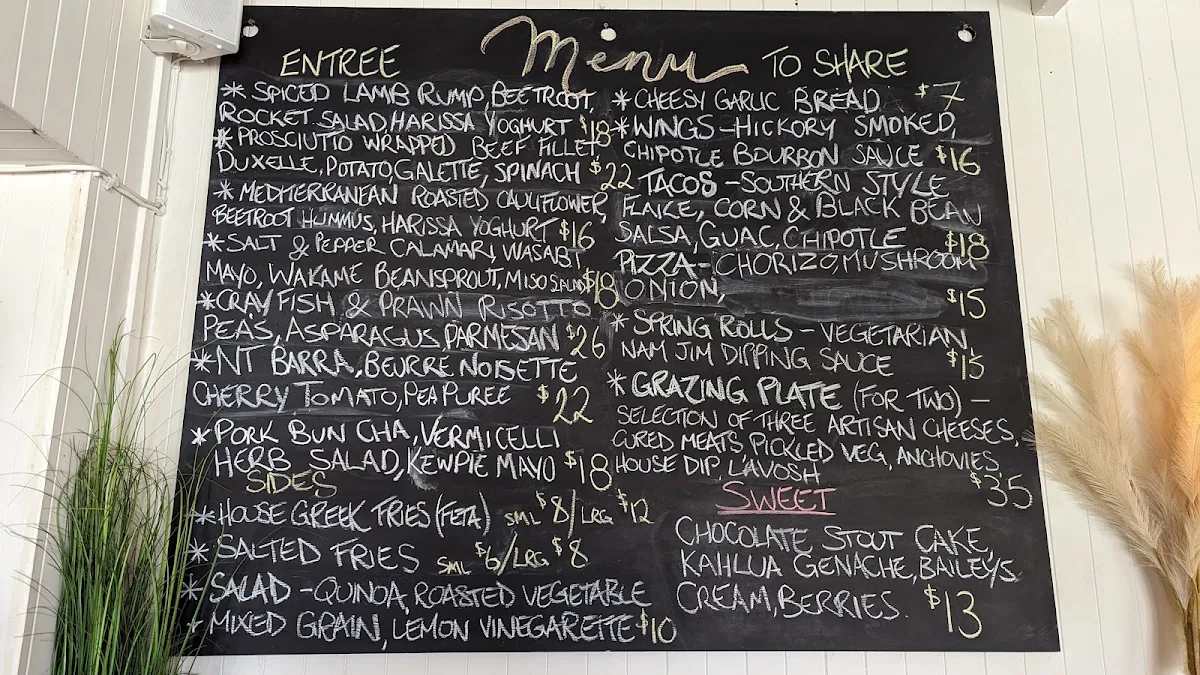 Menu
ENTREE
* SPICED LAMB RUMP, BEETROOT,
ROCKET SALAD, HARISSA YOGHURT $18
* PROSCIUTIO WRAPPED BEEF FILLET
DUXELLE, POTATO, GALETTE, SPINACH $22
* MEDITERRANEAN ROASTED CAULIFLOWER,
BEETROOT HUMMUS, HARISSA YOGHURT $16
* SALT & PEPPER CALAMARI, WASABI
MAYO, WAKAME BEANSPROUT, MISO SALAD $18
* CRAYFISH & PRAWN RISOTTO
PEAS, ASPARAGUS, PARMESAN $26
* NT BARRA, BEURRE NOISETTE
CHERRY TOMATO, PEA PUREE $22
* PORK BUN CHA, VERMICELLI
HERB SALAD, KEWPIE MAYO $18
SIDES
* HOUSE GREEK FRIES (FETA) SML $8/LRG $12
* SALTED FRIES SML $6/LRG $8
* SALAD - QUINOA, ROASTED VEGETABLE
* MIXED GRAIN, LEMON VINEGARETTE $10
TO SHARE
* CHEESY GARLIC BREAD $7
* WINGS - HICKORY SMOKED,
CHIPOTLE BOURBON SAUCE $16
TACOS - SOUTHERN STYLE
FLAKE, CORN & BLACK BEAN
SALSA, GUAC, CHIPOTLE $18
PIZZA - CHORIZO, MUSHROOM
ONION, $15
* SPRING ROLLS - VEGETARIAN,
NAM JIM DIPPING SAUCE $15
* GRAZING PLATE (FOR TWO) -
SELECTION OF THREE ARTISAN CHEESES,
CURED MEATS, PICKLED VEG, ANCHOVIES,
HOUSE DIP, L'AVOSH $35
SWEET
CHOCOLATE STOUT CAKE,
KAHLUA GENACHE, BAILEYS
CREAM, BERRIES. $13